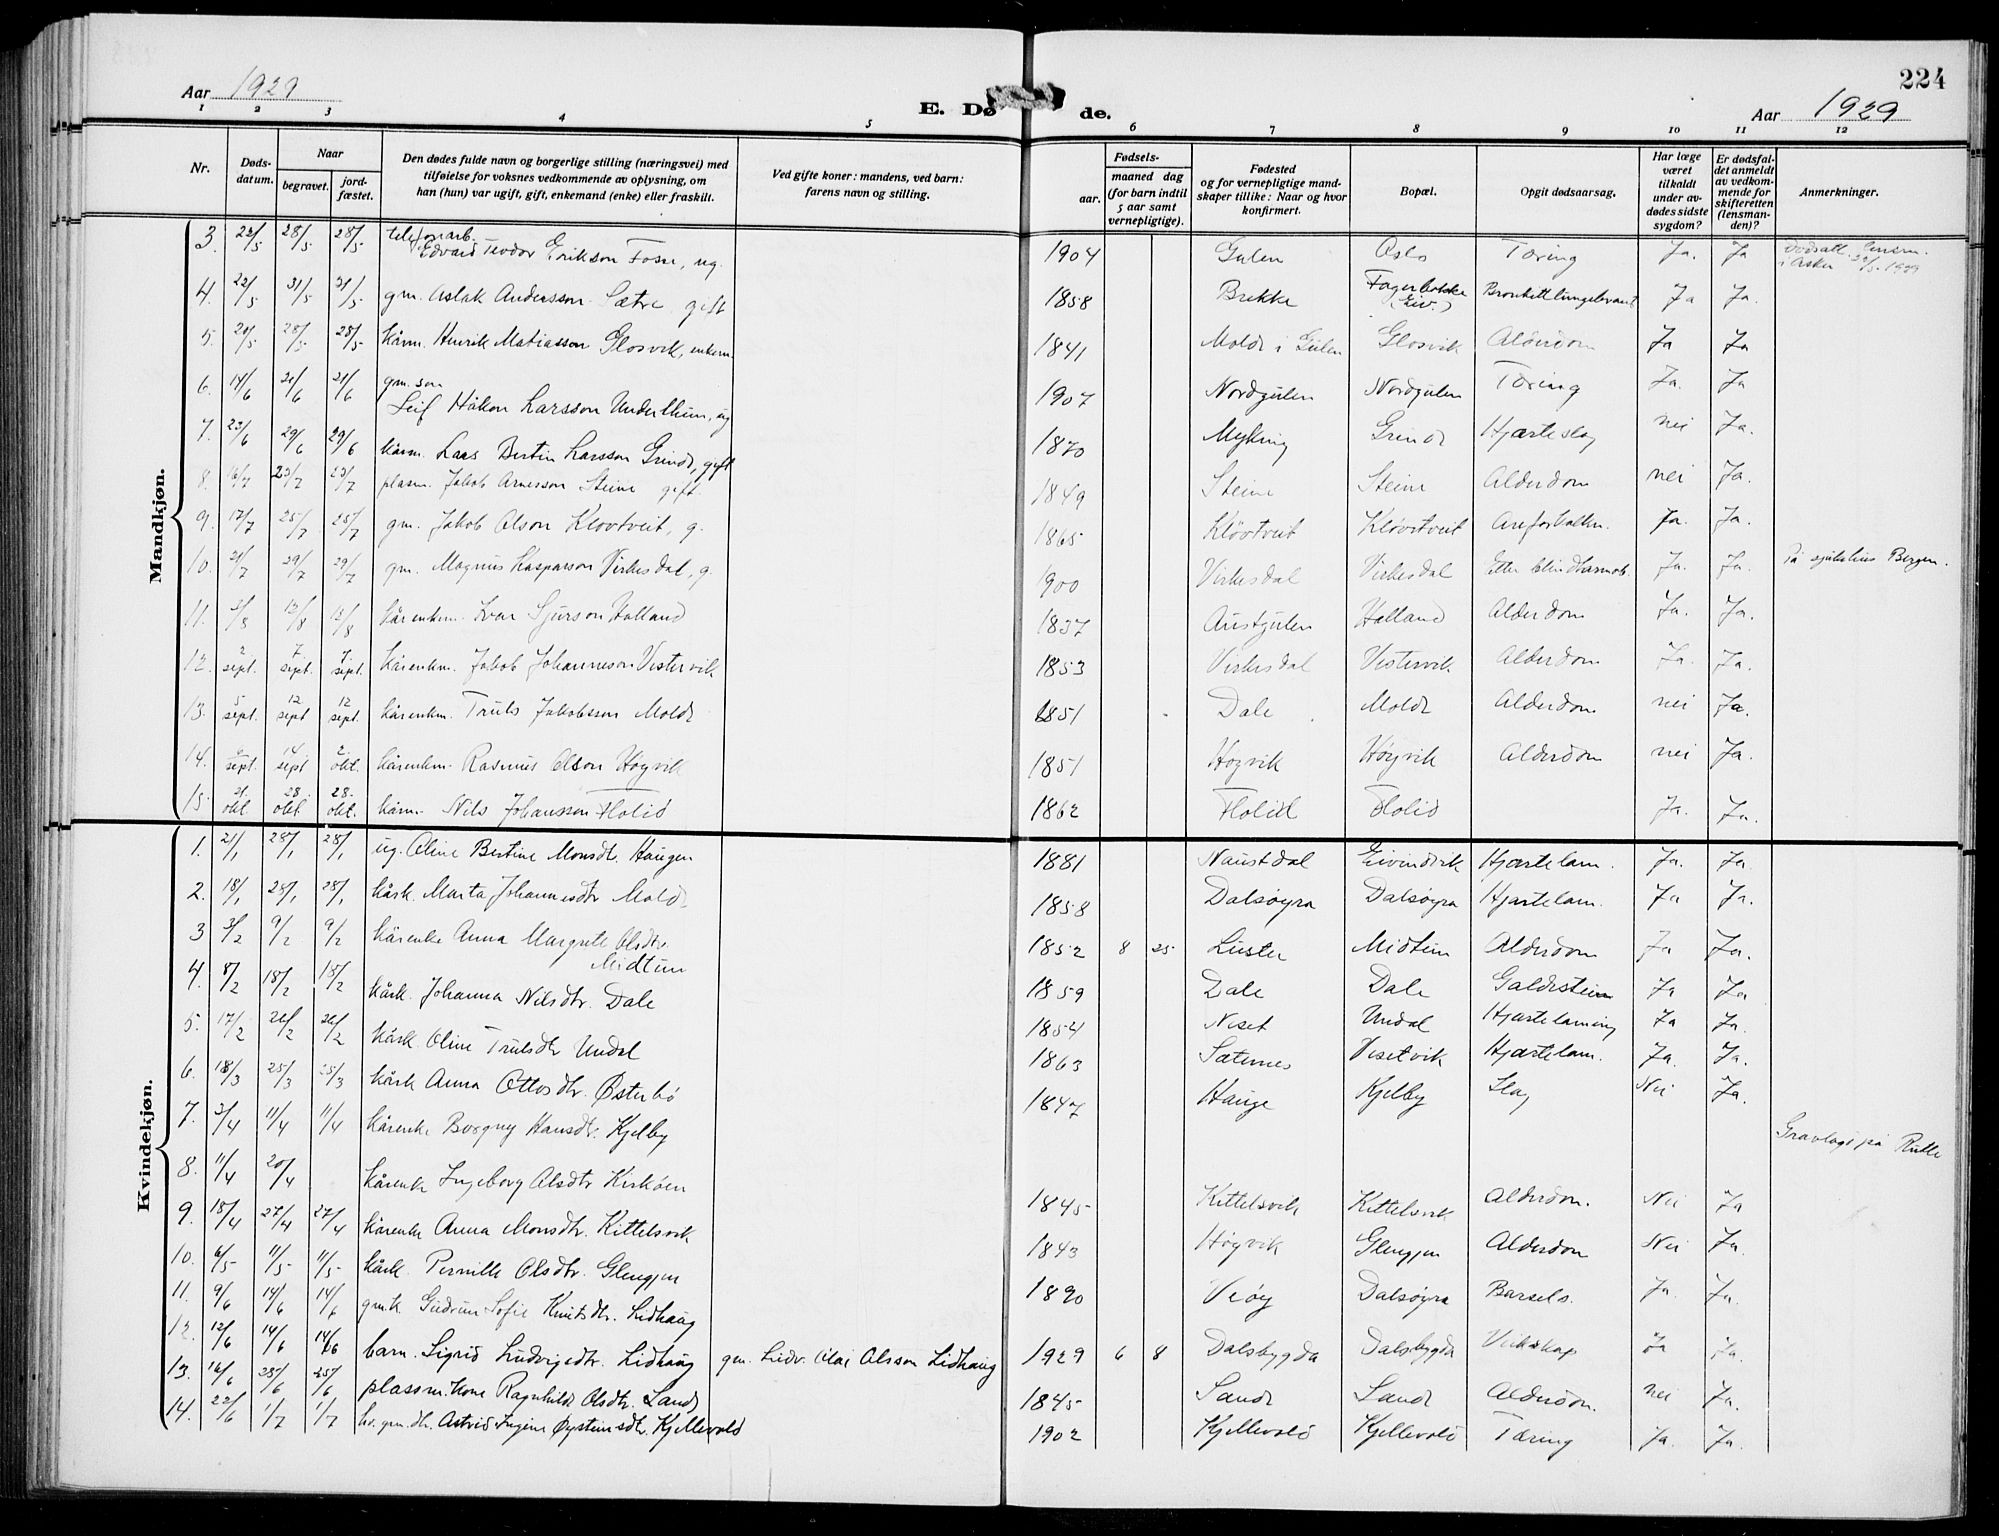 224
Aar 1929
E. Døde.
Aar 1929
1 2 3 4 5 6 7 8 9 10 11 12
Nr.
Døds-datum.
Naar
begravet.
jord-fæstet.
Den dødes fulde navn og borgerlige stilling (næringsvei) med
tilføielse for voksnes vedkommende av oplysning, om
han (hun) var ugift, gift, enkemand (enke) eller fraskilt.
Ved gifte koner: mandens, ved barn:
farens navn og stilling.
Fødsels-
aar.
maaned dag
(for barn indtil
5 aar samt
vernepligtige).
Fødested
og for vernepligtige mand-
skaper tillike: Naar og hvor
konfirmert.
Bopæl.
Opgit dødsaarsag.
Har læge
været
tilkaldt
under av-
dødes sidste
sygdom?
Er dødsfal-
det anmeldt
av vedkom-
mende for
skifteretten
(lensman-
den)?
Anmerkninger.
Mandkjøn.
3. 22/5 28/5 28/5 telefonarb. Edvard Teodor Erikson Fosse, ug. 1904 Gulen Oslo Tæring Ja. Ja i Asker 1929
4. 22/5 31/5 31/5 gm. Aslak Andersson Sætre gift 1858 Brekke (Eiv.) Ja Ja.
5. 20/5 28/5 28/5 kårm. Henrik Matiasson Glosvik, enkem. 1841 Molde i Gulen Glosvik Alderdom Ja Ja
6. 14/6 21/6 21/6 gm. son Leif Håkon Larsson Underthun, ug 1907 Nordgulen Nordgulen Tæring Ja. Ja
7. 23/6 29/6 29/6 kårm. Lars Bertin Larsson Grinde, gift 1870 Myking Grinde Hjarteslag nei Ja.
8. 16/7 23/7 23/7 plasm. Jakob Arnesson Steine gift. 1849 Steine Steine Alderdom nei Ja.
9. 17/7 25/7 25/7 gm. Jakob Olson Kløvtveit, g. 1865 Kløvtveit Kløvtveit Areforkalkn. Ja. Ja.
10. 21/7 29/7 29/7 gm. Magnus Kasparson Virkesdal, g. 1900 Virkesdal Virkesdal Etter blindtarmob. Ja. Ja. På sjukehus Bergen.
11. 3/8 13/8 13/8 kårenkm. Ivar Sjurson Halland 1837 Austgulen Halland Alderdom Ja. Ja.
12. 2 sept. 7 sept. 7 sept. kårenkm. Jakob Johanneson Vestervik 1853 Virkesdal Vestervik Alderdom Ja. Ja.
13. 5 sept. 12 sept 12 sept. kårenkm. Truls Jakobsson Molde 1851 Dale Molde Alderdom nei Ja.
14. 6 sept. 14 sept 2 okt. kårenkm. Rasmus Olson Høgvik 1851 Høgvik Høgvik Alderdom nei Ja.
15. 21. okt 28. okt. 28. okt. kårm. Nils Johansson Flolid 1862 Flolid Flolid Ja. Ja.
Kvindekjøn.
1. 21/1 28/1 28/1 ug. Oline Bertine Monsdtr. Haugen 1881 Naustdal Eivindvik Hjartelam. Ja. Ja
2. 18/1 28/1 28/1 kårk. Marta Johannesdtr Molde 1858 Dalsøyra Dalsøyra Hjartelam. Ja Ja.
3 3/2 9/2 9/2 kårenke Anna Margrete Olsdtr. Midtun 1852 8 25 Luster Midtun Alderdom Ja Ja.
4. 8/2 18/2 18/2 kårk. Johanna Nilsdtr. Dale 1859 Dale Dale Galdestein Ja Ja
5. 17/2 26/2 26/2 kårk. Oline Trulsdtr Undal 1854 Neset Undal Hjartelaming Ja Ja.
6. 18/3 25/3 25/3 kårk Anna Ottosdtr. Østerbø 1863 Sæternes Visetvik Hjartelam. Ja. Ja.
7. 3/4 11/4 11/4 kårenke Borgny Hansdtr. Kjelby 1847 Hauge Kjelby Slag Nei Ja.
8. 11/4 20/4 kårenke Ingeborg Olsdtr Kirkøen Gravlagt på Rutle
9. 18/4 27/4 27/4 kårenke Anna Monsdtr. Kittelsvik 1845 Kittelsvik Kittelsvik Alderdom. Nei Ja
10. 6/5 11/5 11/5 kårk. Pernille Olsdtr. Glengjen 1843 Høgvik Glengjen Alderdom Nei Ja.
11. 9/6 14/6 14/6 gm.k. Gudrun Sofie Knutsdtr. Lidhaug 1890 Veøy Dalsøyra Barsels. Ja. Ja.
12. 12/6 14/6 14/6 barn. Sigrid Ludvigsdtr. Lidhaug gm. Ludv. Olai Olsson Lidhaug 1929 6 8 Dalsbygda Dalsbygda Ja Ja.
13. 16/6 25/6 25/6 plassm. kone Ragnhilde Olsdtr. Sande 1845 Sande Sande Alderdom. nei Ja.
14. 22/6 1/7 1/7 hv. gm. dtr. Astrid Ingine Øysteinsdtr. Kjellevold 1902 Kjellevold Kjellevold Tæring Ja. Ja.